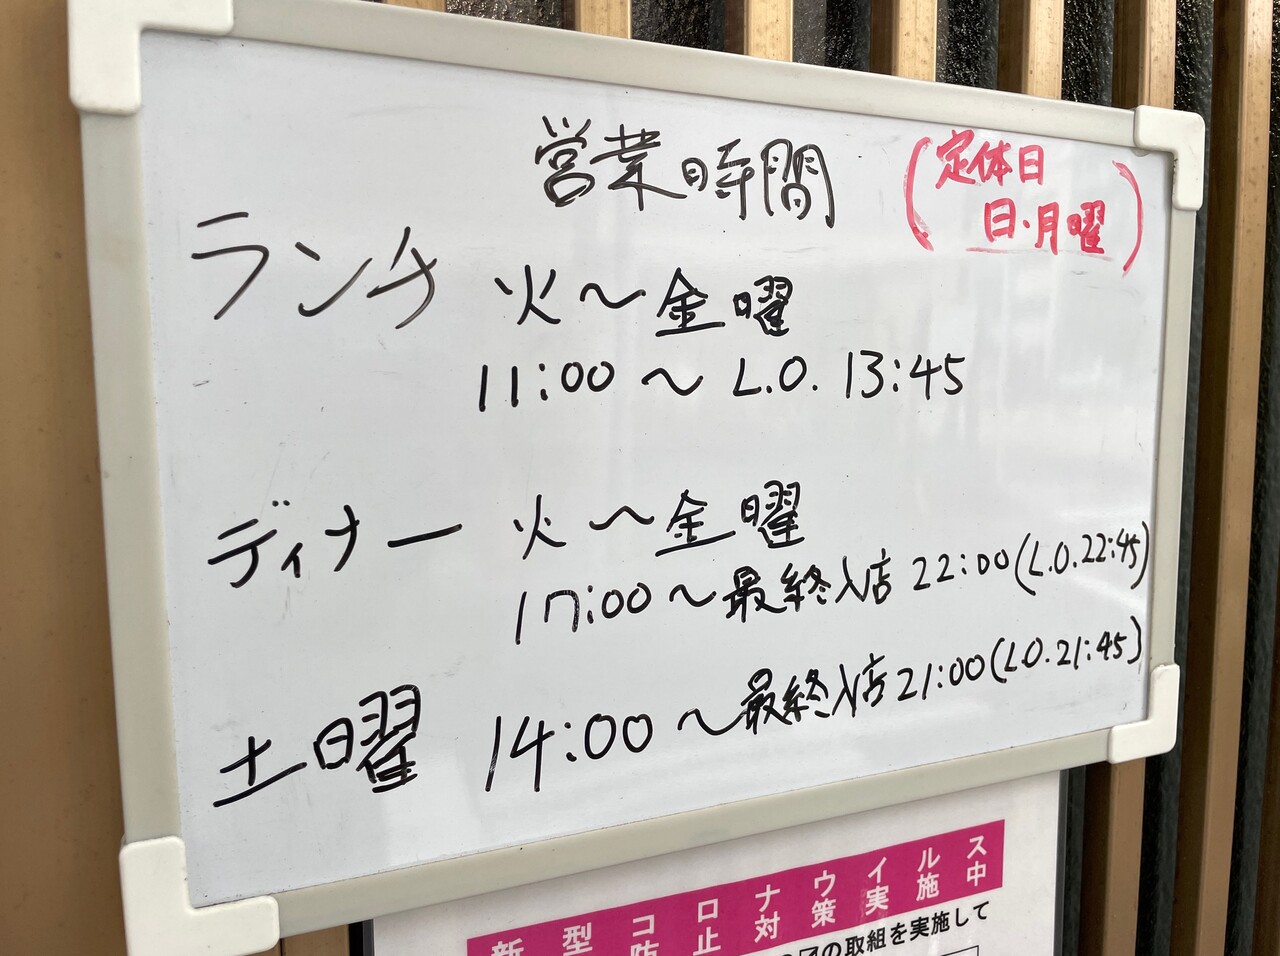 営業時間
(定休日
日・月曜)
ランチ 火〜金曜
11:00 〜 L.O. 13:45
ディナー 火〜金曜
17:00 〜 最終入店 22:00 (L.O. 22:45)
土曜 14:00 〜 最終入店 21:00 (L.O. 21:45)
新型コロナウイルス
防止対策実施中
の取組を実施して